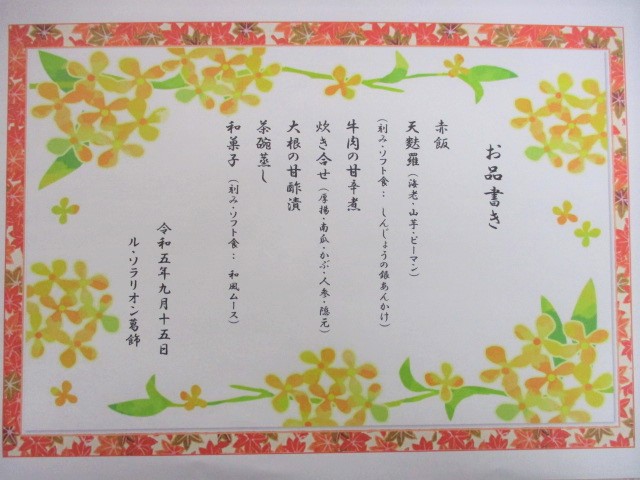 お品書き
赤飯
天麩羅(海老・山芋・ピーマン)
(刻み・ソフト食：しんじょうの銀あんかけ)
牛肉の甘辛煮
炊き合せ(厚揚・南瓜・かぶ・人参・隠元)
大根の甘酢漬
茶碗蒸し
和菓子(刻み・ソフト食：和風ムース)
令和五年九月十五日
ル・ソラリオン葛飾